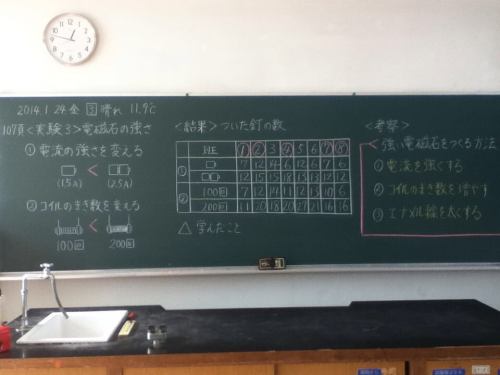 2014.1.24.金 ③ 晴れ 11.9℃
107頁<実験3>電磁石の強さ
①電流の強さを変える
<
(1.5A) (2.5A)
②コイルのまき数を変える
<
100回 200回
<結果>ついた釘の数
班 ① ② 3 ④ 5 6 ⑦ ⑧
① 7 12 14 6 12 6 7 6
12 15 15 18 13 12
② 100回 7 12 14 11 12 13 10 6
200回 11 20 18 20 27 21 16 16
△学んたこと
<考察>
強い電磁石をつくる方法
①電流を強くする
②コイルのまき数を増やす
③エナメル線を太くする